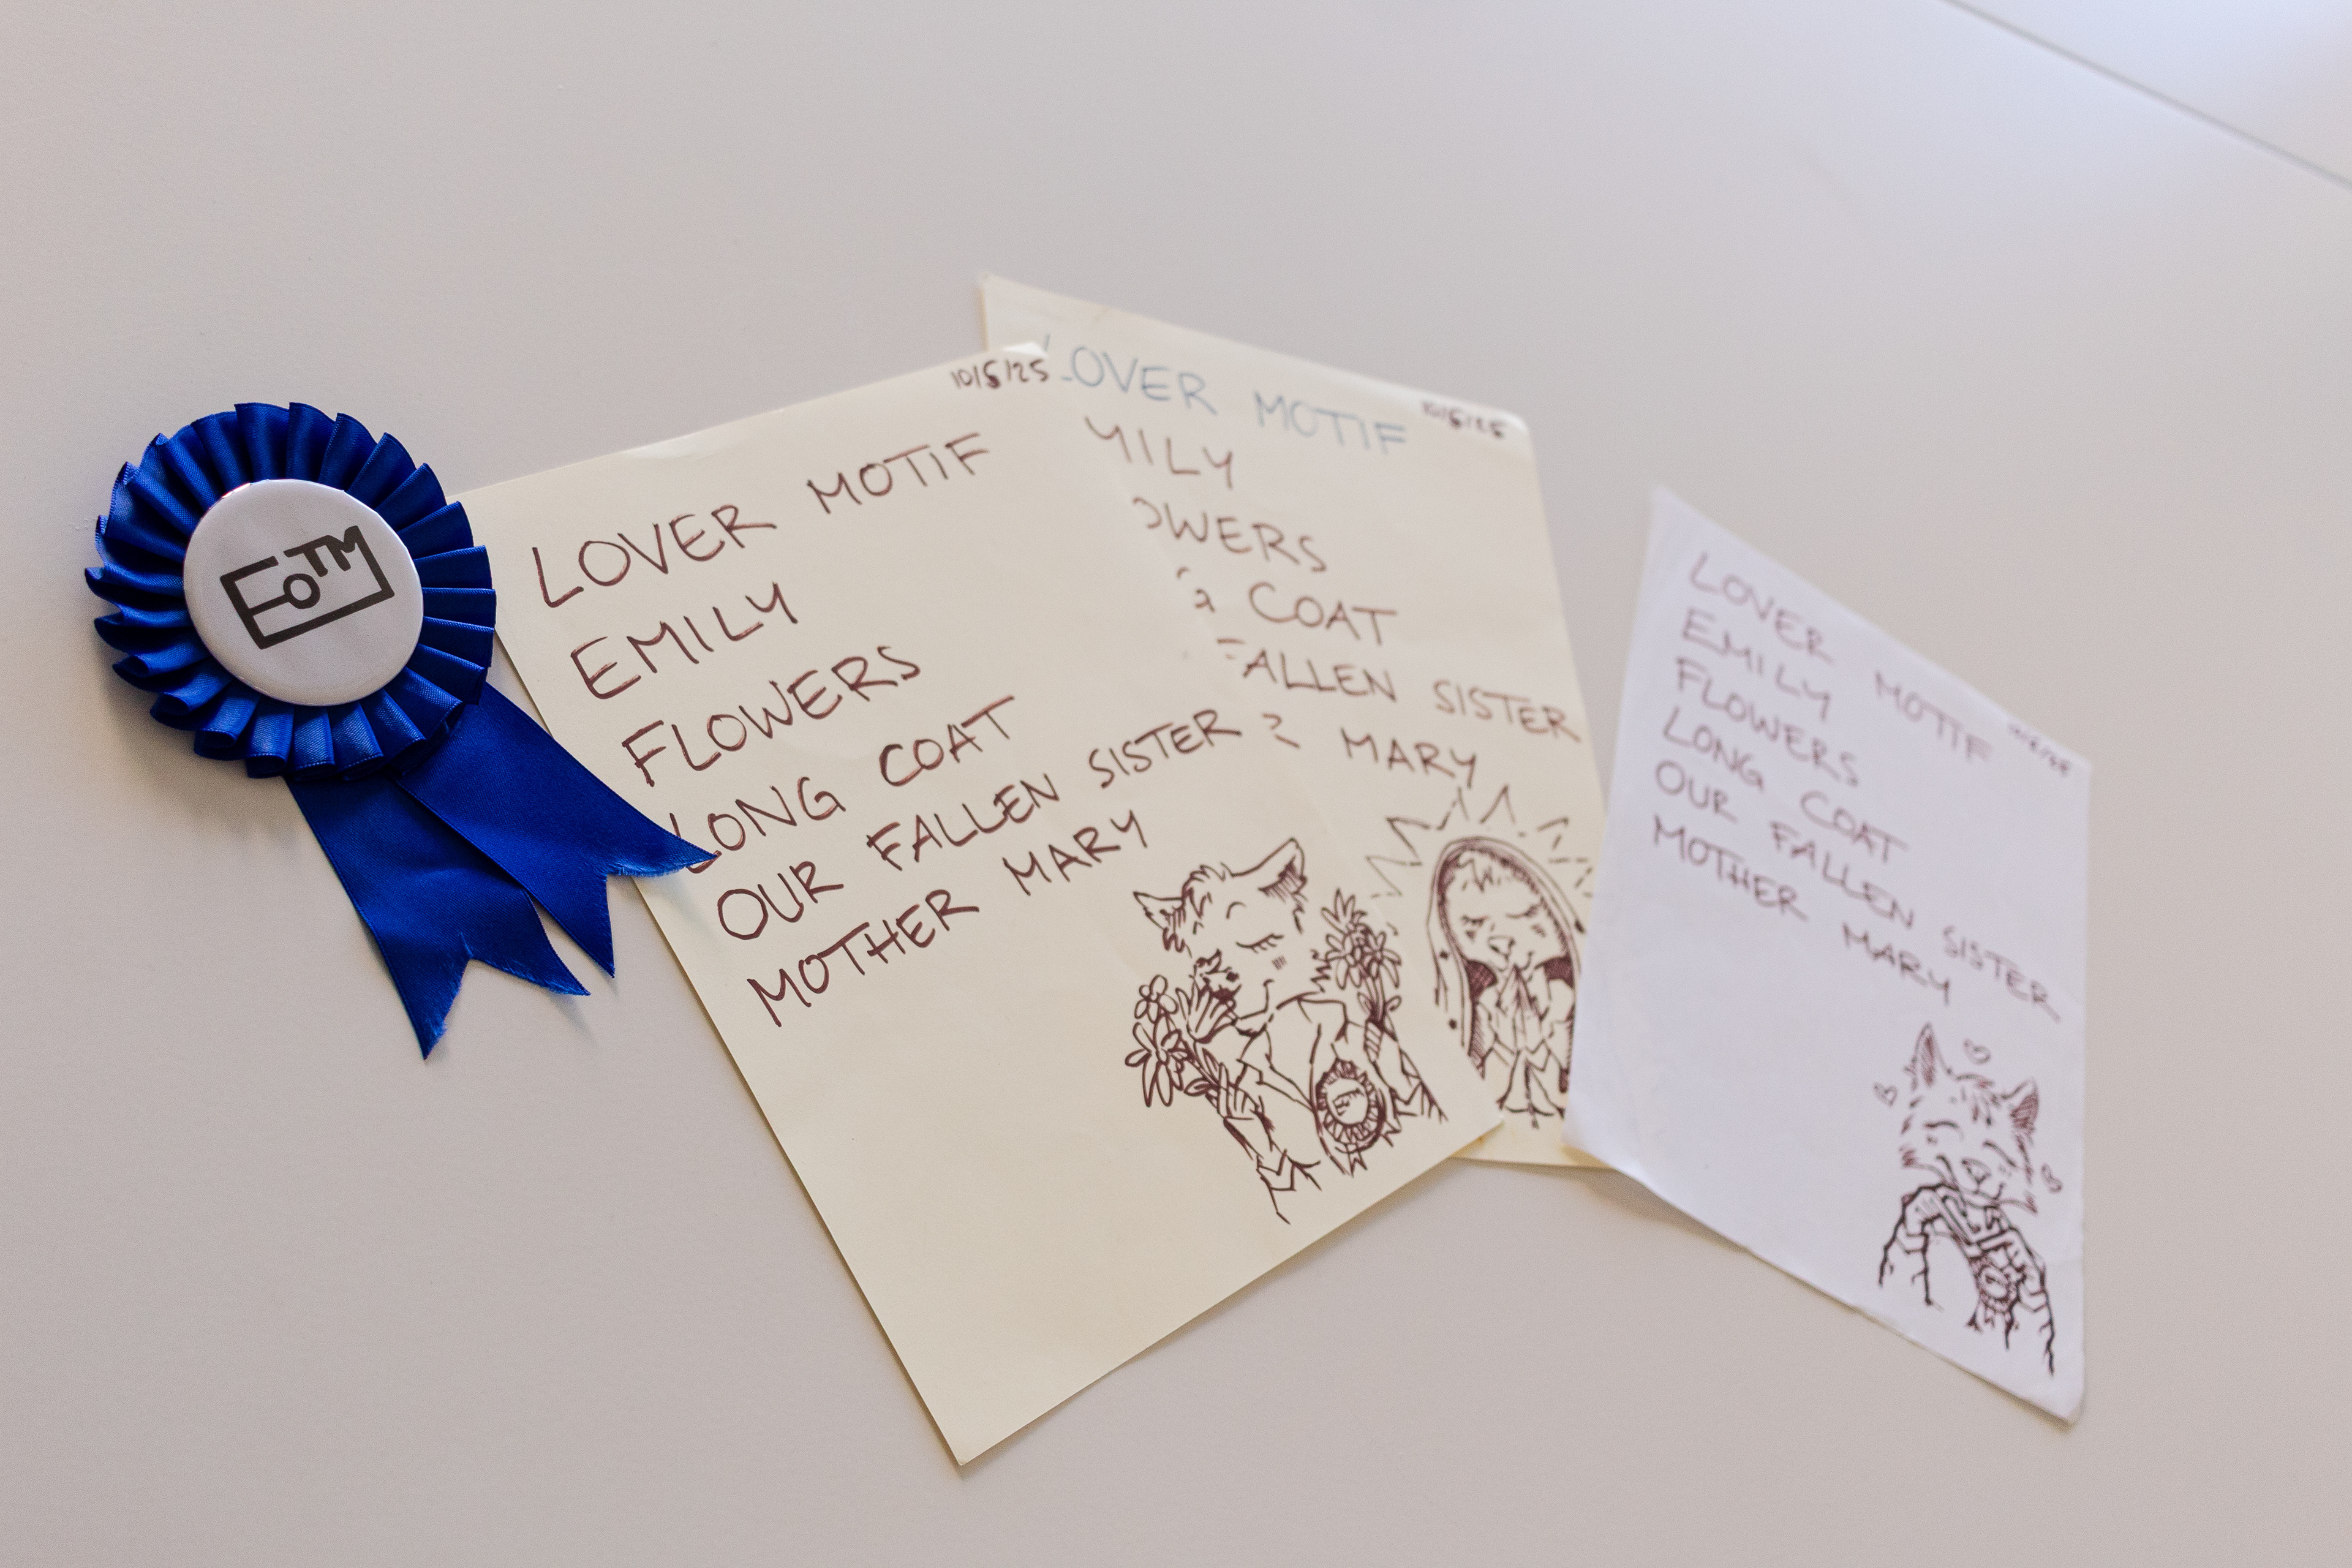 EOTM
10/5/25
LOVER MOTIF
EMILY
FLOWERS
LONG COAT
OUR FALLEN SISTER
MOTHER MARY
10/5/25
LOVER MOTIF
MILY
OWERS
G COAT
FALLEN SISTER
R MARY
LOVER MOTIF
EMILY
FLOWERS
LONG COAT
OUR FALLEN SISTER
MOTHER MARY